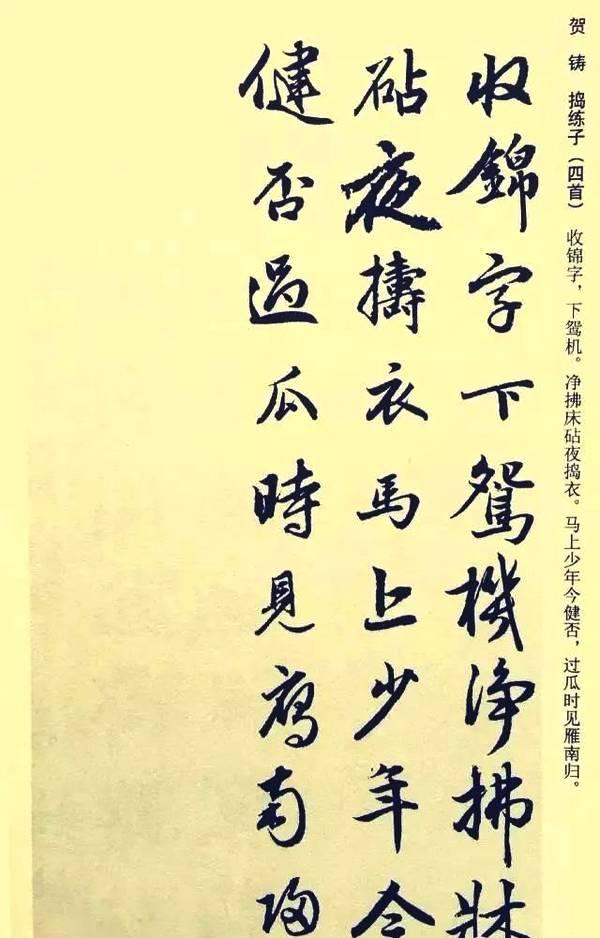 贺 铸 捣练子（四首） 收锦字，下鸳机。净拂床砧夜捣衣。马上少年今健否，过瓜时见雁南归。
收錦字下鴛機淨拂牀
砧夜擣衣馬上少年今
健否過瓜時見雁南歸